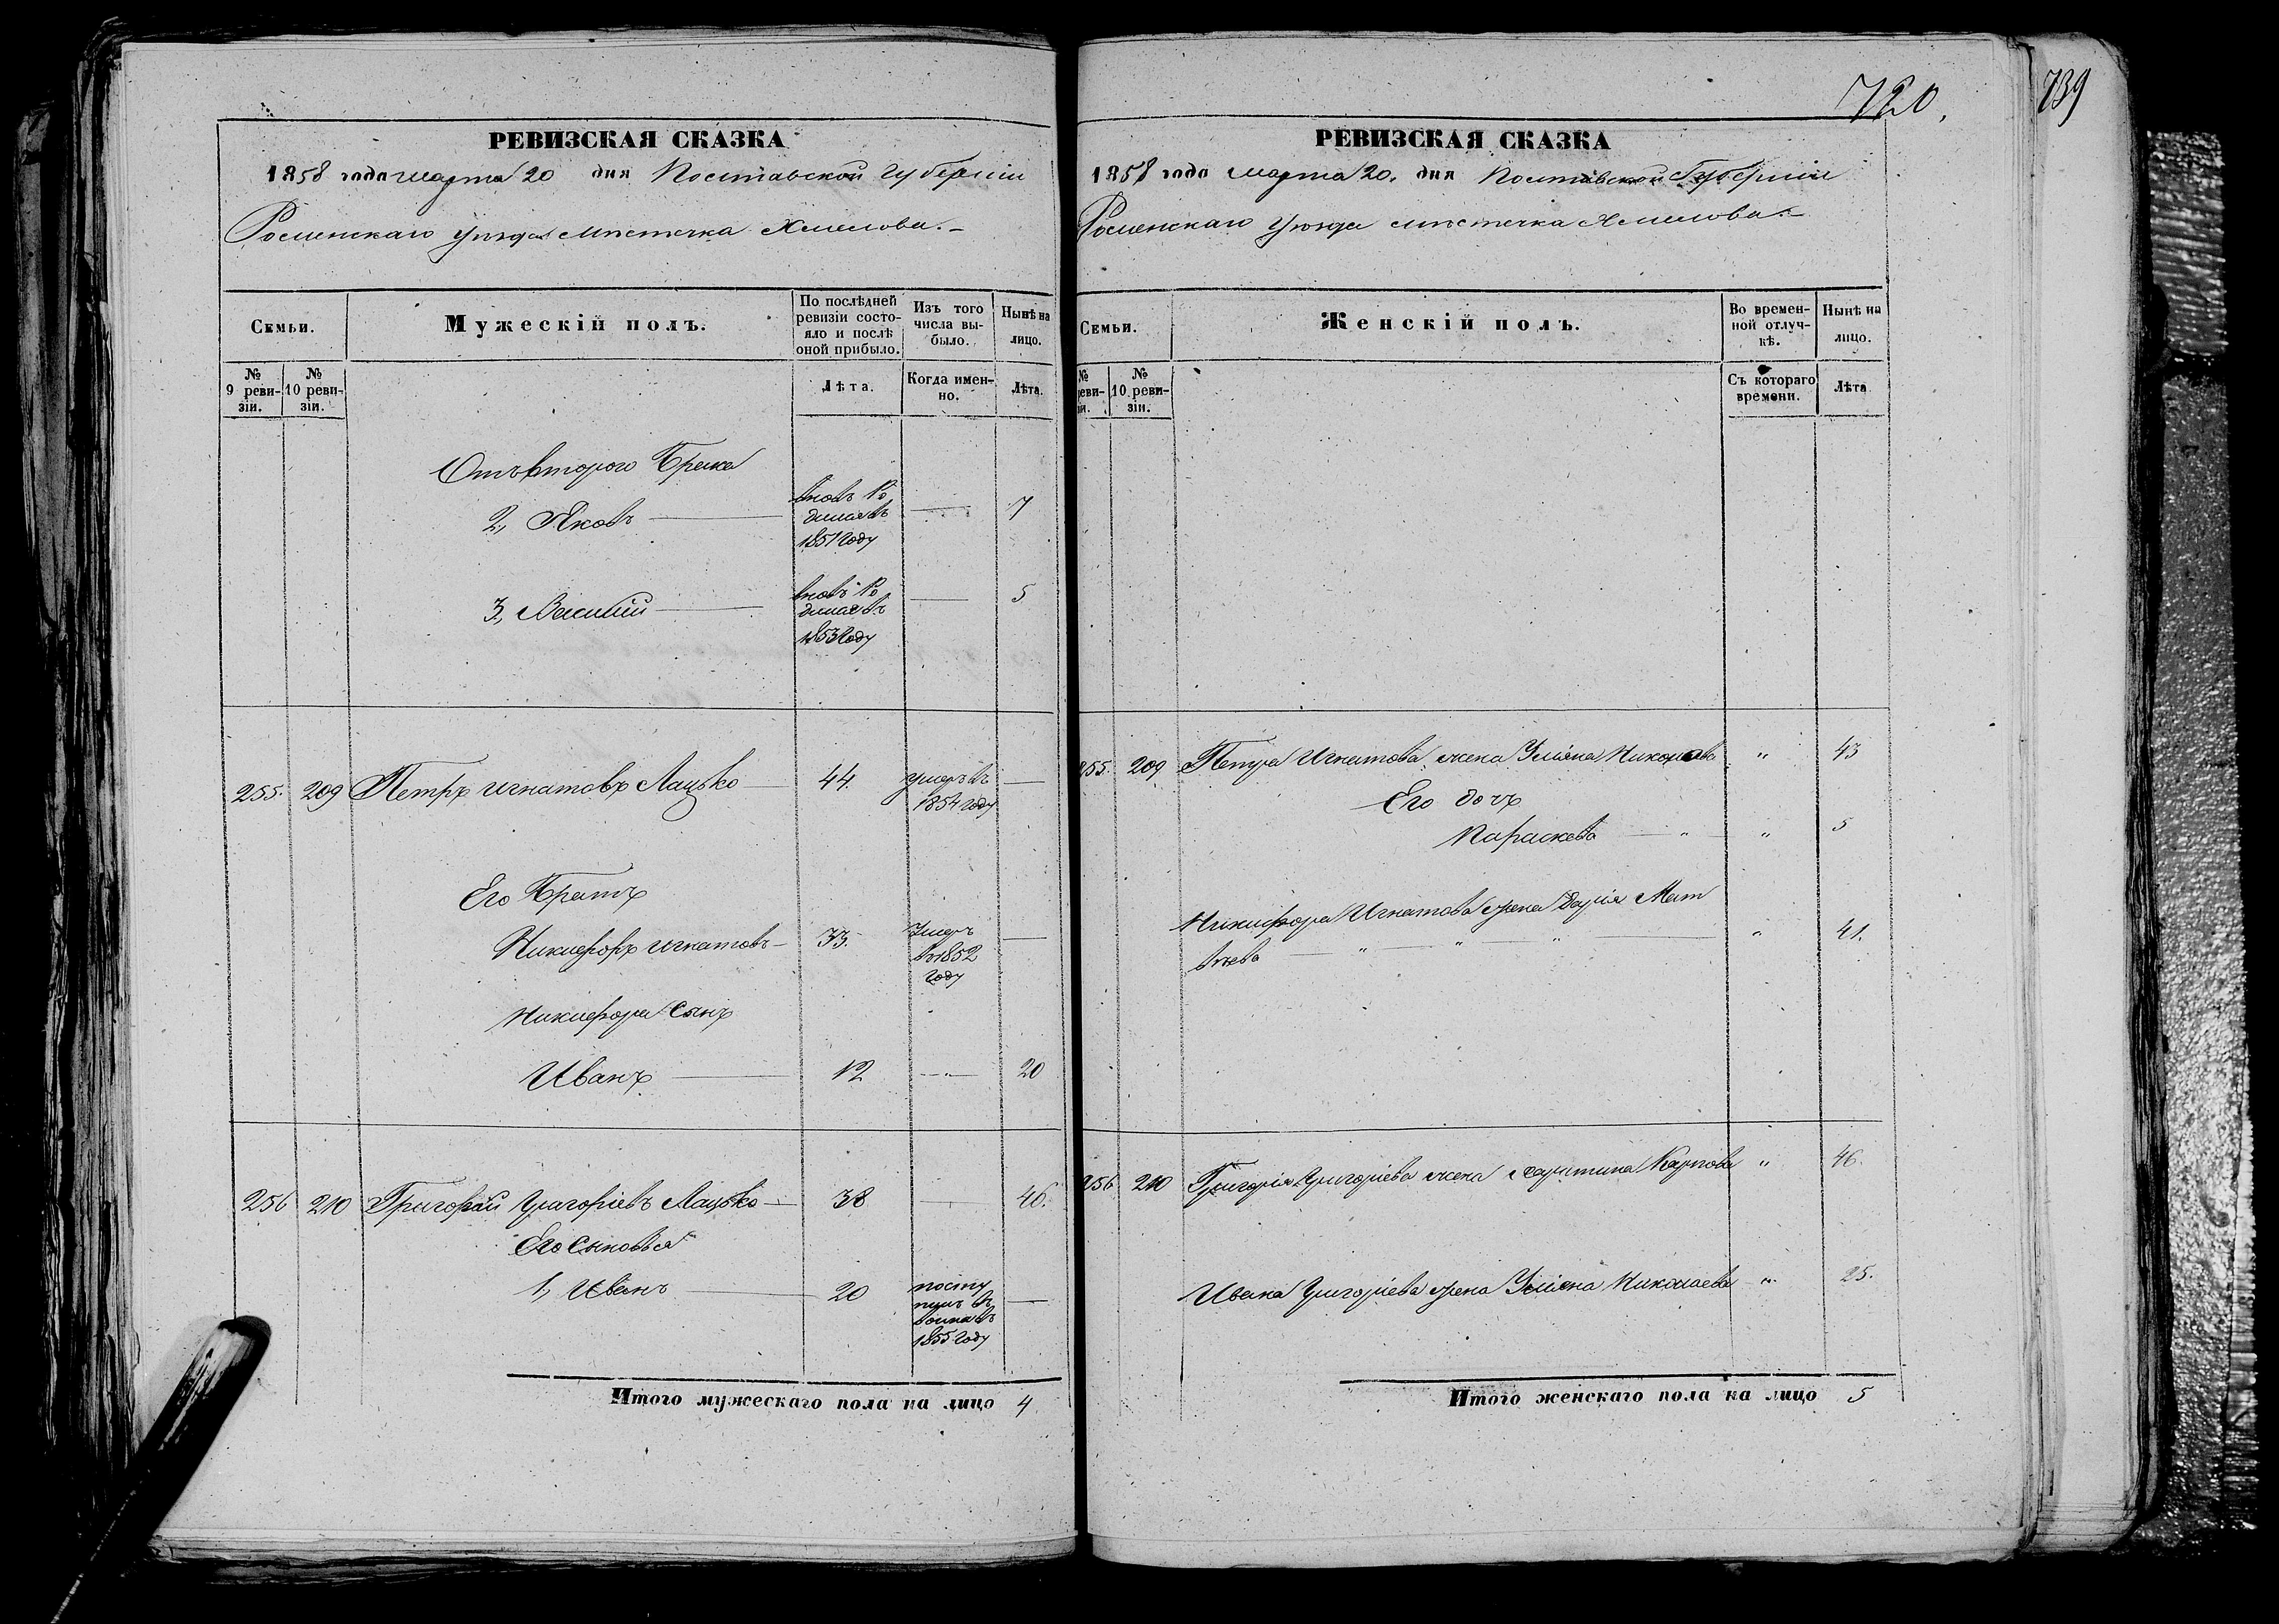 720.
739
РЕВИЗСКАЯ СКАЗКА
1858 года марта 20 дня Полтавской губерніи
Роменскаго уѣзда мѣстечка Хмелова.
Семьи.
Мужескій полъ.
По послѣдней ревизіи состояло и послѣ оной прибыло.
Изъ того числа выбыло.
Нынѣ на лицо.
№ 9 ревизіи.
№ 10 ревизіи.
Лѣта.
Когда именно.
Лѣта.
Отъ второго брака
2., Яковъ вновь родился въ 1851 году — 7
3., Василій вновь родился въ 1853 году — 5
255. 209 Петръ Игнатовъ Лацько 44. умеръ въ 1854 году —
Его братъ
Никифоръ Игнатовъ 33. умеръ въ 1852 году —
Никифора сынъ
Иванъ 12 — 20
256 210 Григорій Григоріевъ Лацько 38 — 46.
Его сыновья
1, Иванъ 20 поступилъ въ войска въ 1855 году —
Итого мужескаго пола на лицо 4
РЕВИЗСКАЯ СКАЗКА
1858 года марта 20. дня Полтавской Губерніи
Роменскаго уѣзда мѣстечка Хмелова.
Семьи.
Женскій полъ.
Во временной отлучкѣ.
Нынѣ на лицо.
№ реви-
№ 10 ревизіи.
Съ котораго времени.
Лѣта
255. 209 Петра Игнатова жена Уліяна " 43
Его дочь
Параскева " " 5
Никифора Игнатова жена Дарія Мат
вѣева " " " " 41.
256 210 Григорія Григоріева жена Харитина Карпова " 46.
Ивана Григоріева жена Уліяна Николаева " 25.
Итого женскаго пола на лицо 5